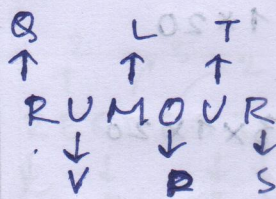 Q L T
RUMOUR
V P S